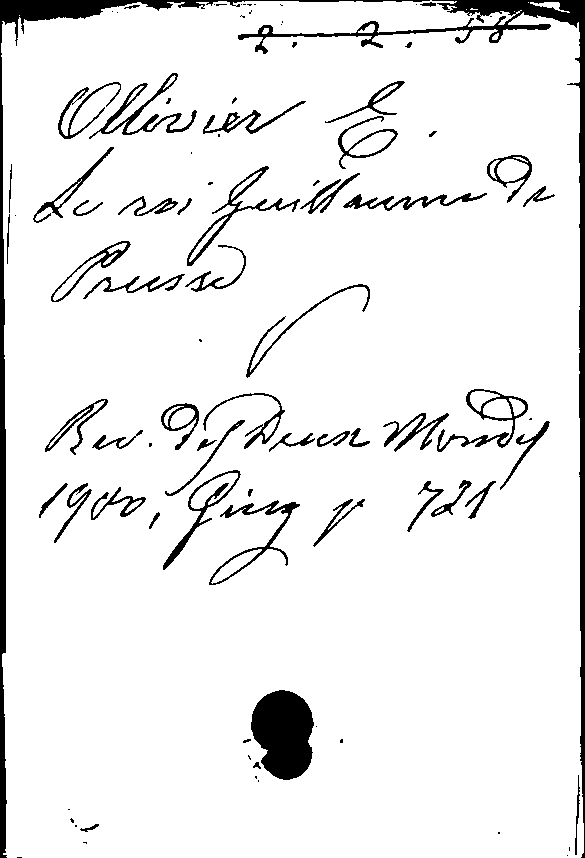 2. 2. 58
Ollivier E.
Le roi Guillaume de
Prusse
Rev. des Deux Mondes
1900, p 721